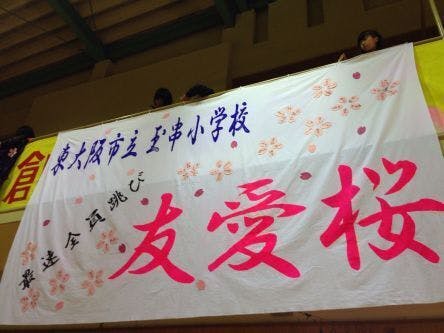 東大阪市立玉串小学校
最速全員跳び
友愛桜
倉